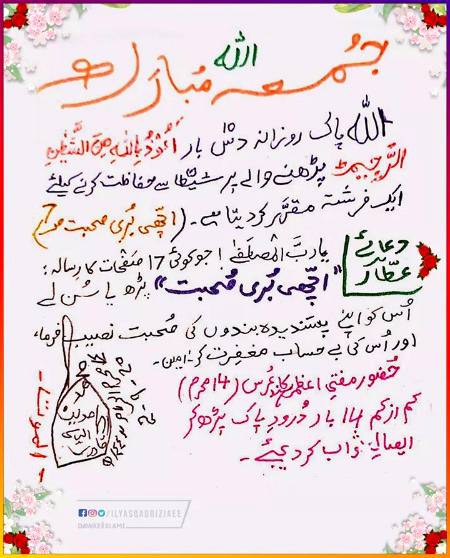 اللہ
جُمعہ مُبارک
اللہ پاک روزانہ دس بار اَعُوْذُ بِاللہِ مِنَ الشَّیْطٰنِ
الرَّجِیْمِ پڑھنے والے پر شیطان سے حفاظت کرنے کیلئے
ایک فرشتہ مقرّر کر دیتا ہے۔ (اچّھی بُری صحبت
دعائے عطّار
یاربَّ المصطفٰے! جو کوئی 17 صفحات کا رسالہ:
"اچّھی بُری صُحبت" پڑھ یا سُن لے
اُس کو اپنے پسندیدہ بندوں کی صُحبت نصیب فرما،
اور اُس کی بے حساب مغفِرت کر۔ اٰمین۔
حُضور مفتیِ اعظم ہند کا عُرس (14 محرم)
کم از کم 14 بار دُرودِ پاک پڑھ کر
ایصالِ ثواب کر دیجئے۔
الموت
/ILYASQADRIZIAEE
DAWATEISLAMI